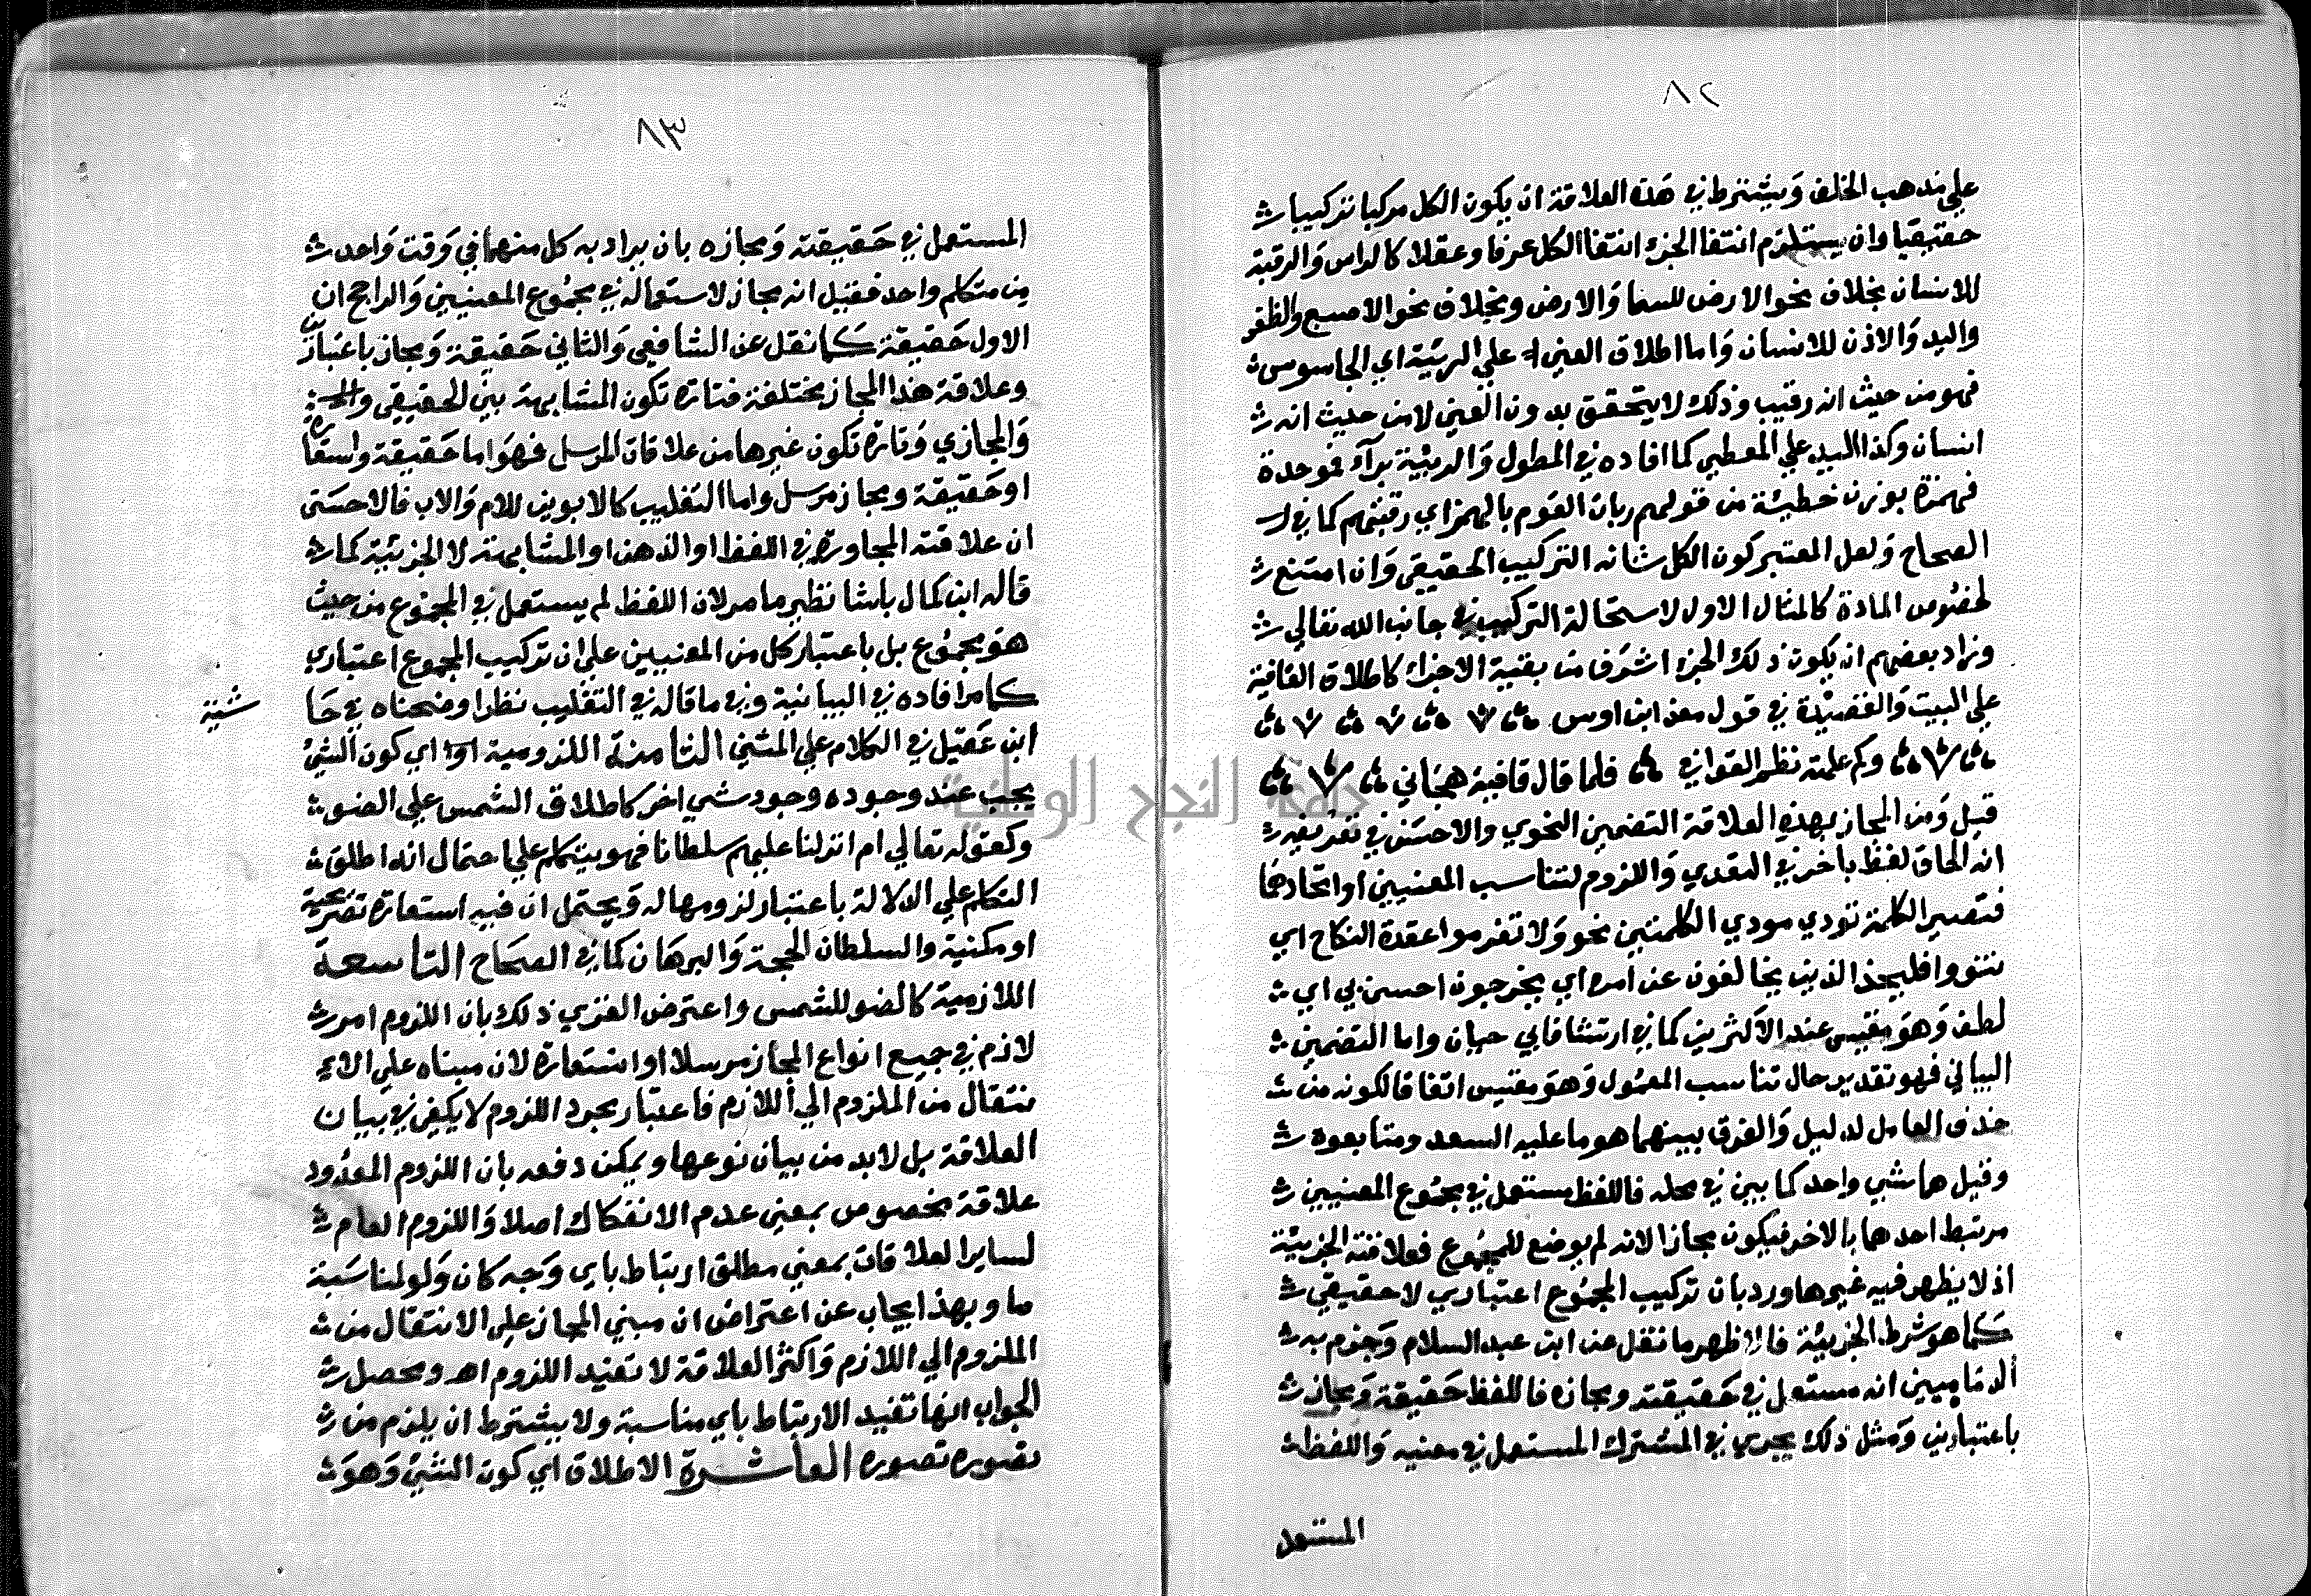 ٨٢
علي مذهب الخلف وَيشترط في هَذه العلاقة ان يكون الكل مركبا تركيبا
حقيقيا وان يستلزم انتفا الجزء انتفا الكل عرفا وعقلا كالراس وَالرقبة
للانسان بخلاف نحو الارض للسما وَالارض وبخلاف نحو الاصبع والظفر
واليد وَالاذن للانسان وَاما اطلاق العين علي الربيئة اي الجاسوس
فهو من حيث انه رقيب وذلك لا يتحقق بدون العين لا من حيث انه
انسان وكذا اليد علي المعطي كما افاده في المطول وَالربيئة برآء فموحدة
فهمزة بوزن خطيئة من قولهم ربات القوم بالهمز اي رقبتهم كما في
الصحاح وَلعل المعتبر كون الكل شانه التركيب الحقيقي وَان امتنع
لخصُوص المادة كالمثال الاول لاستحالة التركيب في جانب الله تعالي
وزاد بعضهم ان يكون ذلك الجزء اشرف من بقية الاجزاء كاطلاق القافية
علي البيت وَالقصيدة في قول معن ابن اوس
وكم علمته نظم القوافي فلما قال قافية هجاني
قيل وَمن المجاز بهذه العلاقة التضمين النحوي والاحسَن في تعريفه
انه الحاق لفظ باخر في التعدي وَاللزوم لتناسب المعنيين او اتحادهما
فتصير الكلمة تودي مودي الكلمتين نحو وَلا تعزموا عقدة النكاح اي
تنووا فليحذر الذين يخالفون عن امره اي يخرجون احسن بي اي
لطف وَهوَ مقيس عند الاكثرين كما في ارتشاف ابي حيان واما التضمين
البياني فهو تقدير حال تناسب المعمُول وَهوَ مقيس اتفاقا لكونه من
حذف العامل لدليل وَالفرق بينهما هو ما عليه السعد ومتابعوه
وقيل هما شي واحد كما بين في محله فاللفظ مستعمل في مجمُوع المعنيين
مرتبط احدهما بالاخر فيكون مجازا لانه لم يوضع للمجمُوع فعلاقته الجزيئة
اذ لا يظهر فيه غيرها ورد بان تركيب المجمُوع اعتباري لا حقيقي
كَما هو شرط الجزيئة فالاظهر ما نقل عن ابن عبد السلام وَجزم به
الدمَاميين انه مستعمل في حَقيقته ومجازه فاللفظ حَقيقة وَمجاز
باعتبارين وَمثل ذلك يجري في المشترك المستعمل في معنيه وَاللفظ
المستعمل
٨٣
المستعمل في حَقيقته وَمجازه بان يراد به كل منهما في وَقت وَاحد
من متكلم واحد فقيل انه مجاز لاستعماله في مجمُوع المعنيين وَالراجح ان
الاول حَقيقة كَما نقل عن الشافعي وَالثاني حَقيقة وَمجاز باعتبارين
وعلاقة هذا المجاز مختلفة فتارة تكون المشابهة بين الحقيقي
وَالمجازي وَتارة تكون غيرها من علاقات المرسل فهوَ اما حَقيقة واستعارة
او حَقيقة ومجاز مرسل واما التغليب كالابوين للام وَالاب فالاحسَن
ان علاقته المجاورة في اللفظ او الذهن او المشابهة لا الجزيئية كما
قاله ابن كمال باشا نظير ما مر لان اللفظ لم يستعمل في المجمُوع من حيث
هوَ مجمُوع بل باعتبار كل من المعنيين علي ان تركيب المجموع اعتباري
كَامر افاده في البيانية وفي ما قاله في التغليب نظر اوضحناه في حَا
شية
ابن عَقيل في الكلام علي المثني الثامنة اللزومية اي كون الشيُ
يجب عند وجوده وجود شي اخر كاطلاق الشمس علي الضو
وكقوله تعالي ام انزلنا عليهم سلطانا فهو يتكلم علي احتمال انه اطلق
التكلم علي الدلالة باعتبار لزومها له وَيحتمل ان فيه استعارة تصريحية
او مكنية والسلطان الحجة وَالبرهَان كما في الصحَاح التاسعة
اللازمية كالضو للشمس واعترض الغزي ذلك بان اللزوم امر
لازم في جميع انواع المجاز مرسلا او استعارة لان مبناه علي الا
نتقال من الملزوم الي اللازم فاعتبار مجرد اللزوم لا يكفي في بَيان
العلاقة بل لابد من بيان نوعها ويمكن دفعه بان اللزوم المعدُود
علاقة مخصوص بمعني عدم الانفكاك اصلا وَاللزوم العام
لساير العلاقات بمعني مطلق ارتباط باي وَجه كان وَلو لمناسَبة
ما وبهذا يجاب عن اعتراض ان مبني المجاز علي الانتقال من
الملزوم الي اللازم وَاكثر العلاقة لا تفيد اللزوم اهـ ومحصل
الجواب انها تفيد الارتباط باي مناسبة ولا يشترط ان يلزم من
تصوره تصوره العاشرة الاطلاق اي كون الشيَ وَهوَ